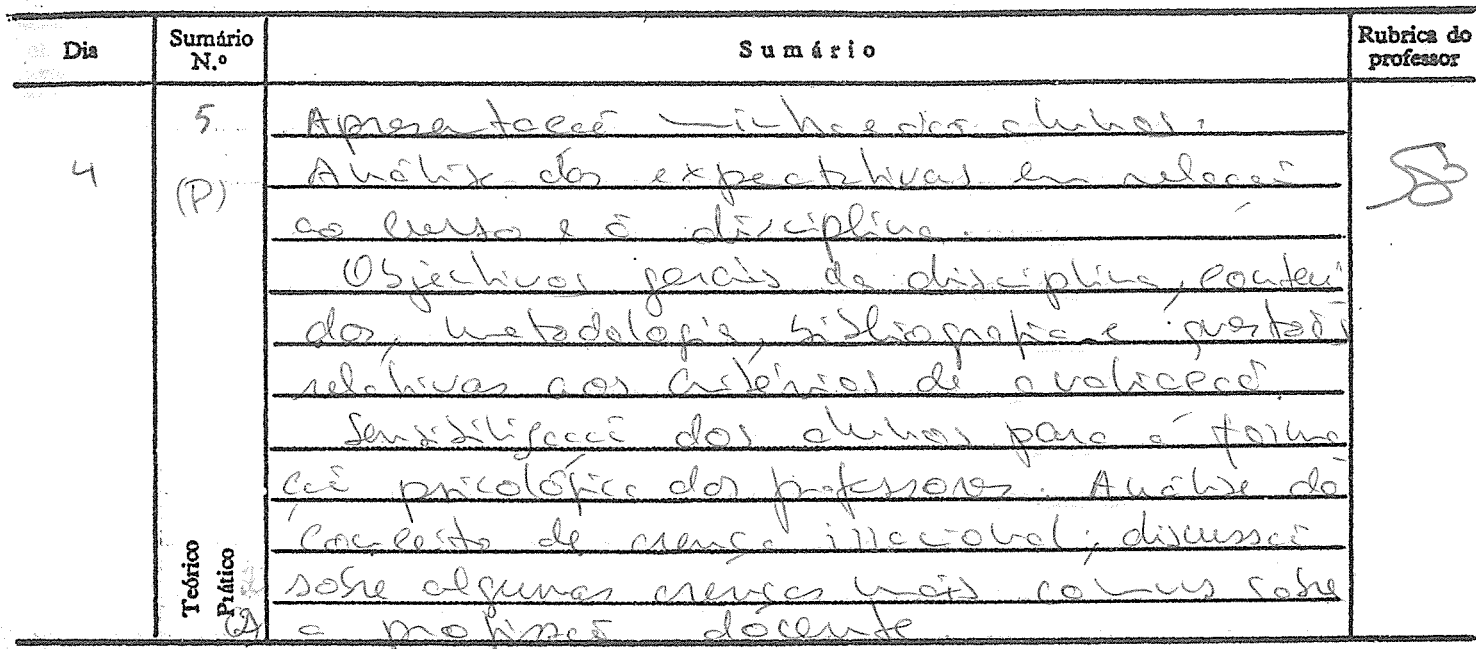 Dia Sumário N.º Sumário Rubrica do professor
5 Apresentação minha e dos alunos.
4 (P) Análise das expectativas em relação
ao curso e à disciplina.
Objectivos gerais da disciplina, conteú
dos, metodologia, bibliografia e questões
relativas aos critérios de avaliação
Sensibilização dos alunos para a forma
ção psicológica dos professores. Análise do
conceito de crença irracional; discussão
sobre algumas crenças mais comuns sobre
a profissão docente
Teórico
Prático
(2)